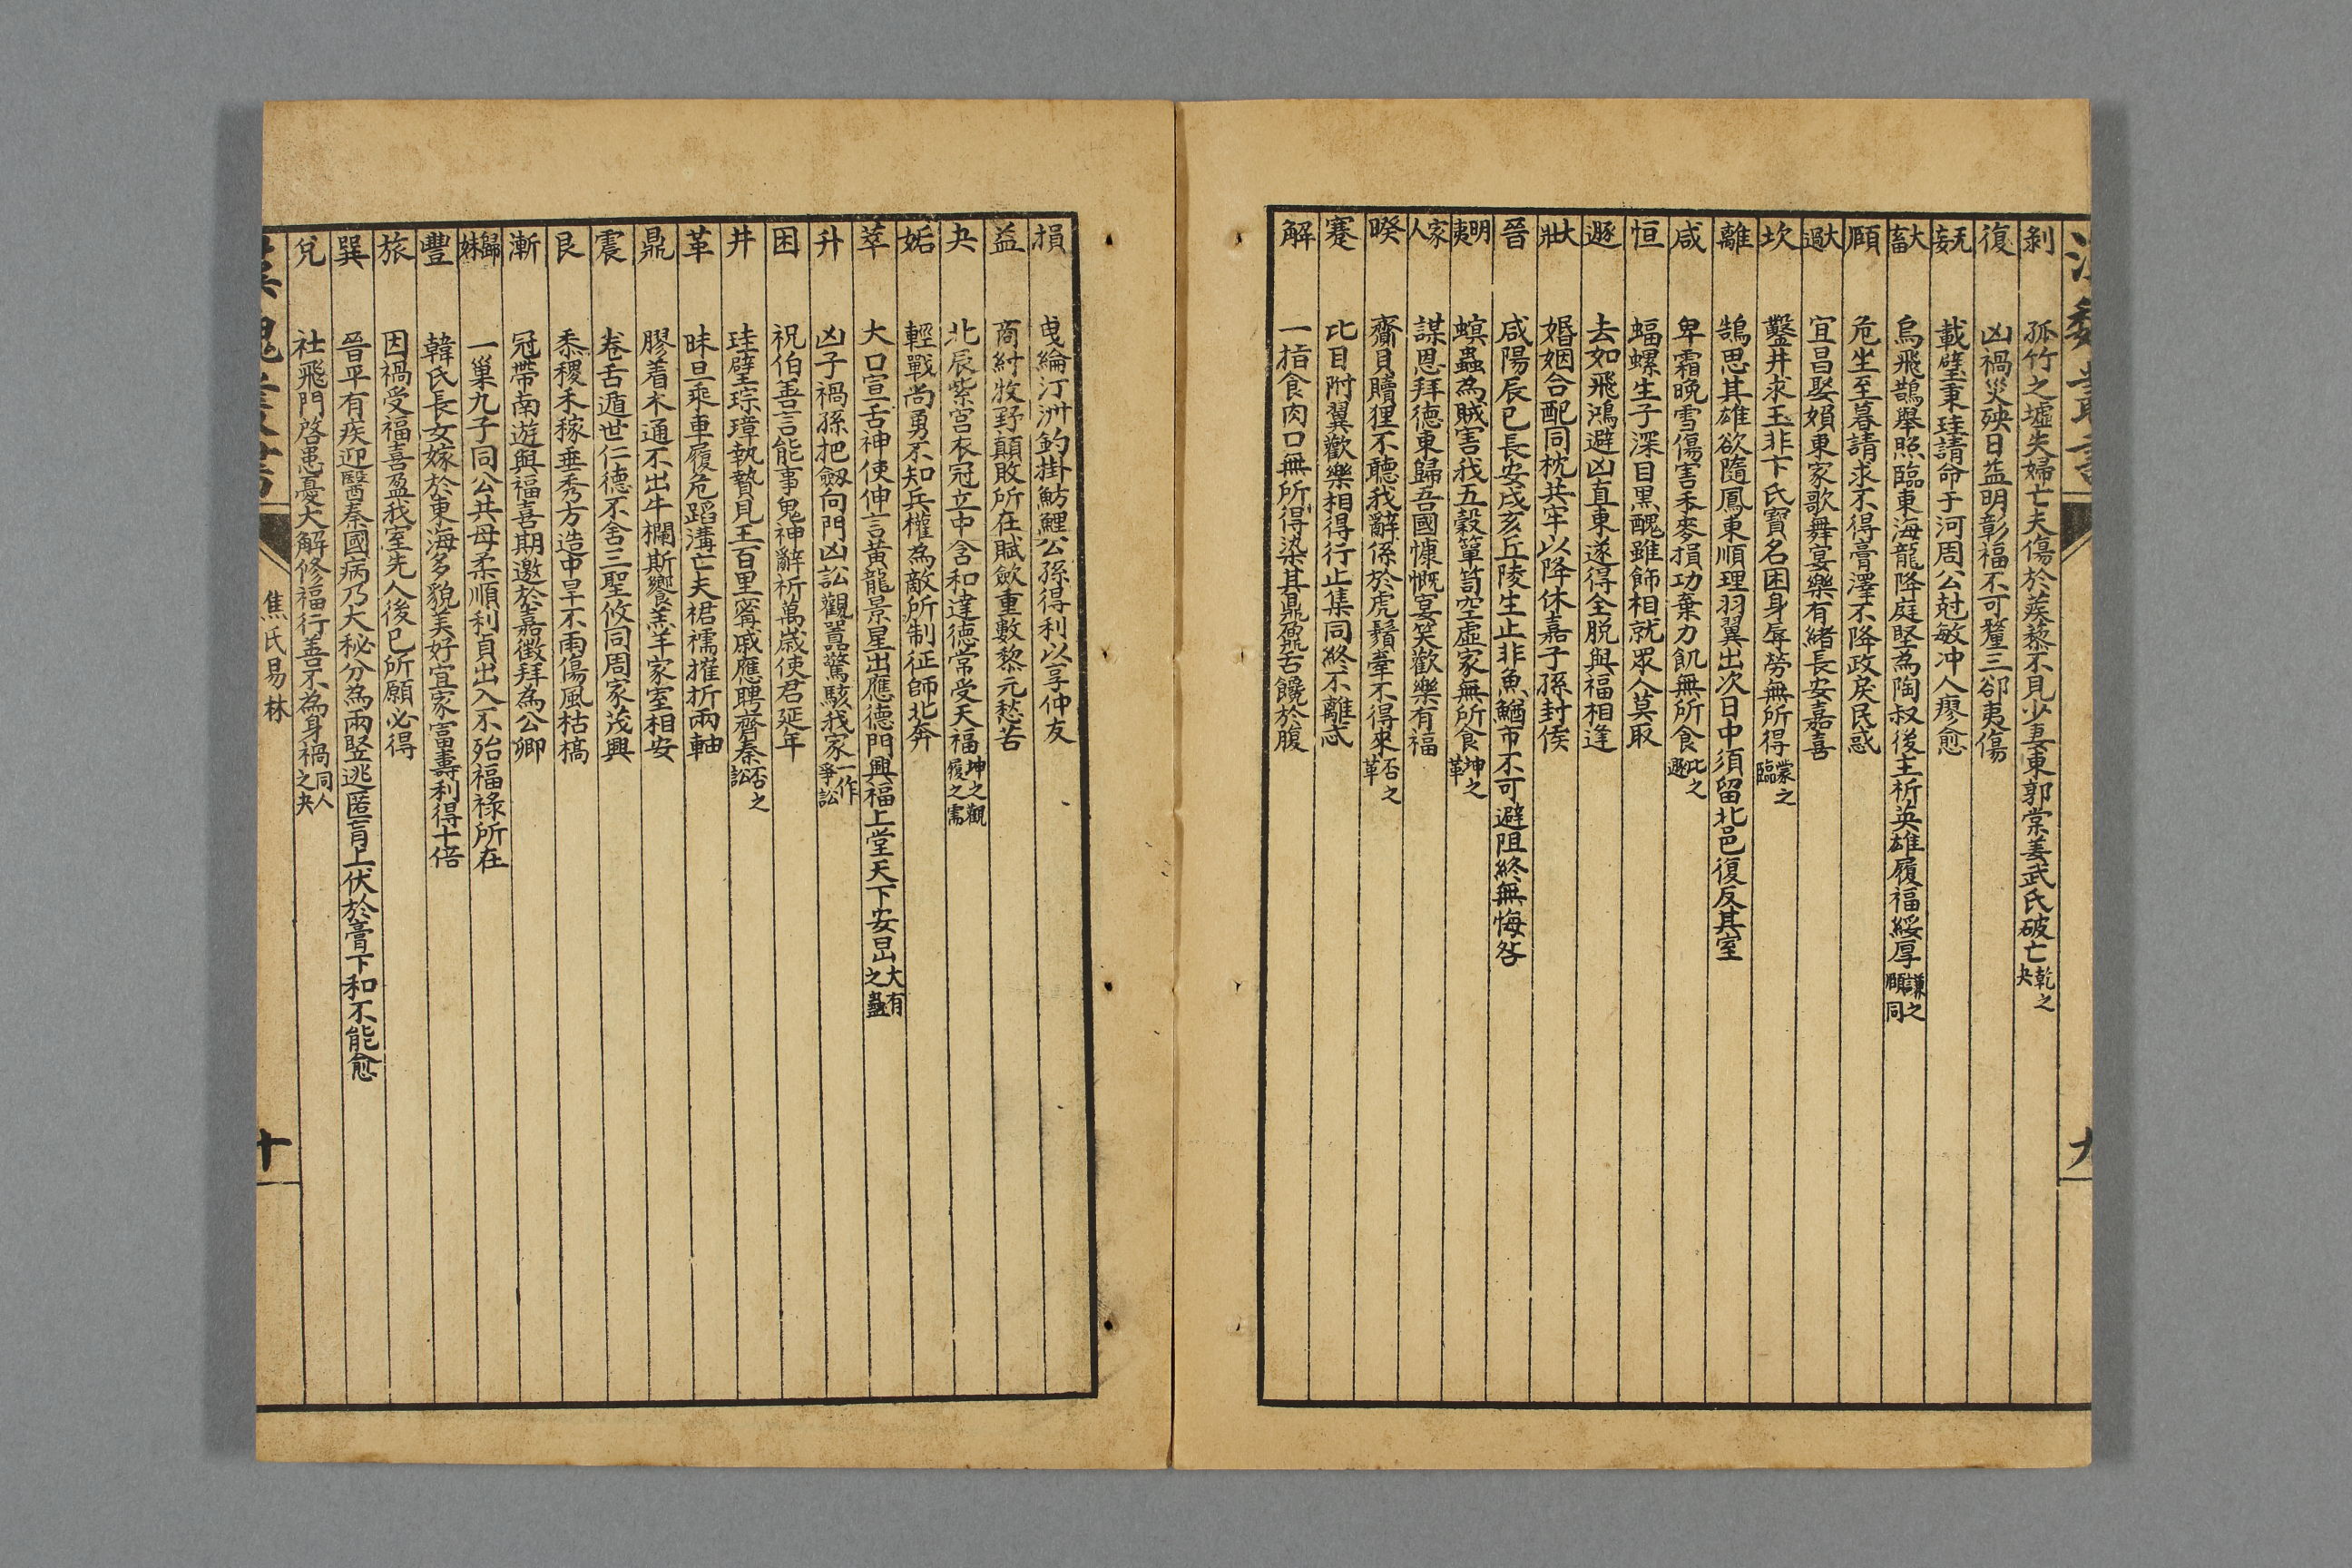 剝 孤竹之墟失婦亡夫傷於蒺藜不見少妻東郭棠姜武氏破亡乾之夬
復 凶禍災殃日益明彰福不可釐三郤夷傷
无妄 載璧秉珪請命于河周公尅敏冲人瘳愈
大畜 烏飛鵲舉照臨東海龍降庭堅為陶叔後主祈英雄履福綏厚謙之頤同
頤 危坐至暮請求不得膏澤不降政戾民惑
大過 宜昌娶婦東家歌舞宴樂有緒長安嘉喜
坎 鑿井求玉非卞氏寶名困身辱勞無所得蒙之臨
離 鵠思其雄欲隨鳳東順理羽翼出次日中須留北邑復反其室
咸 早霜晚雪傷害禾麥損功棄力飢無所食比之遯
恒 蝠螺生子深目黑醜雖飾相就眾人莫取
遯 去如飛鴻避凶直東遂得全脫與福相逢
大壯 婚姻合配同枕共牢以降休嘉子孫封侯
晉 咸陽辰巳長安戌亥丘陵生止非魚鰌市不可避阻終無悔咎
明夷 螟蟲為賊害我五穀簞笥空虛家無所食坤之革
家人 謀恩拜德東歸吾國慷慨宴笑歡樂有福
睽 齎貝贖狸不聽我辭係於虎鬚牽不得來否之革
蹇 比目附翼歡樂相得行止集同終不離忒
解 一指食肉口無所得染其鼎鼐舌饞於腹
漢魏叢書
九
損 曳綸汀洲釣掛魴鯉公孫得利以享仲友
益 商紂牧野顛敗所在賦歛重數黎元愁苦
夬 北辰紫宮衣冠立中含和建德常受天福坤之觀履之需
姤 輕戰尚勇不知兵權為敵所制征師北奔
萃 大口宣舌神使伸言黃龍景星出應德門興福上堂天下安昌大有之蠱
升 凶子禍孫把劔向門凶訟觀囂驚駭我家一作爭訟
困 祝伯善言能事鬼神辭祈萬歲使君延年
井 珪璧琮璋執贄見王百里甯戚應聘齊秦否之訟
革 昧旦乘車履危蹈溝亡夫裙襦摧折兩軸
鼎 膠着木通不出牛欄斯饗羔羊家室相安
震 卷舌遁世仁德不舍三聖攸同周家茂興
艮 黍稷禾稼垂秀方造中旱不雨傷風枯槁
漸 冠帶南遊與福喜期邀於嘉徵拜為公卿
歸妹 一巢九子同公共母柔順利貞出入不殆福祿所在
豐 韓氏長女嫁於東海多貌美好宜家富壽利得十倍
旅 因禍受福喜盈我室先人後已所願必得
巽 晉平有疾迎醫秦國病乃大秘分為兩竪逃匿肓上伏於膏下和不能愈
兌 社飛門啓患憂大解修福行善不為身禍同人之夬
漢魏叢書
焦氏易林
十